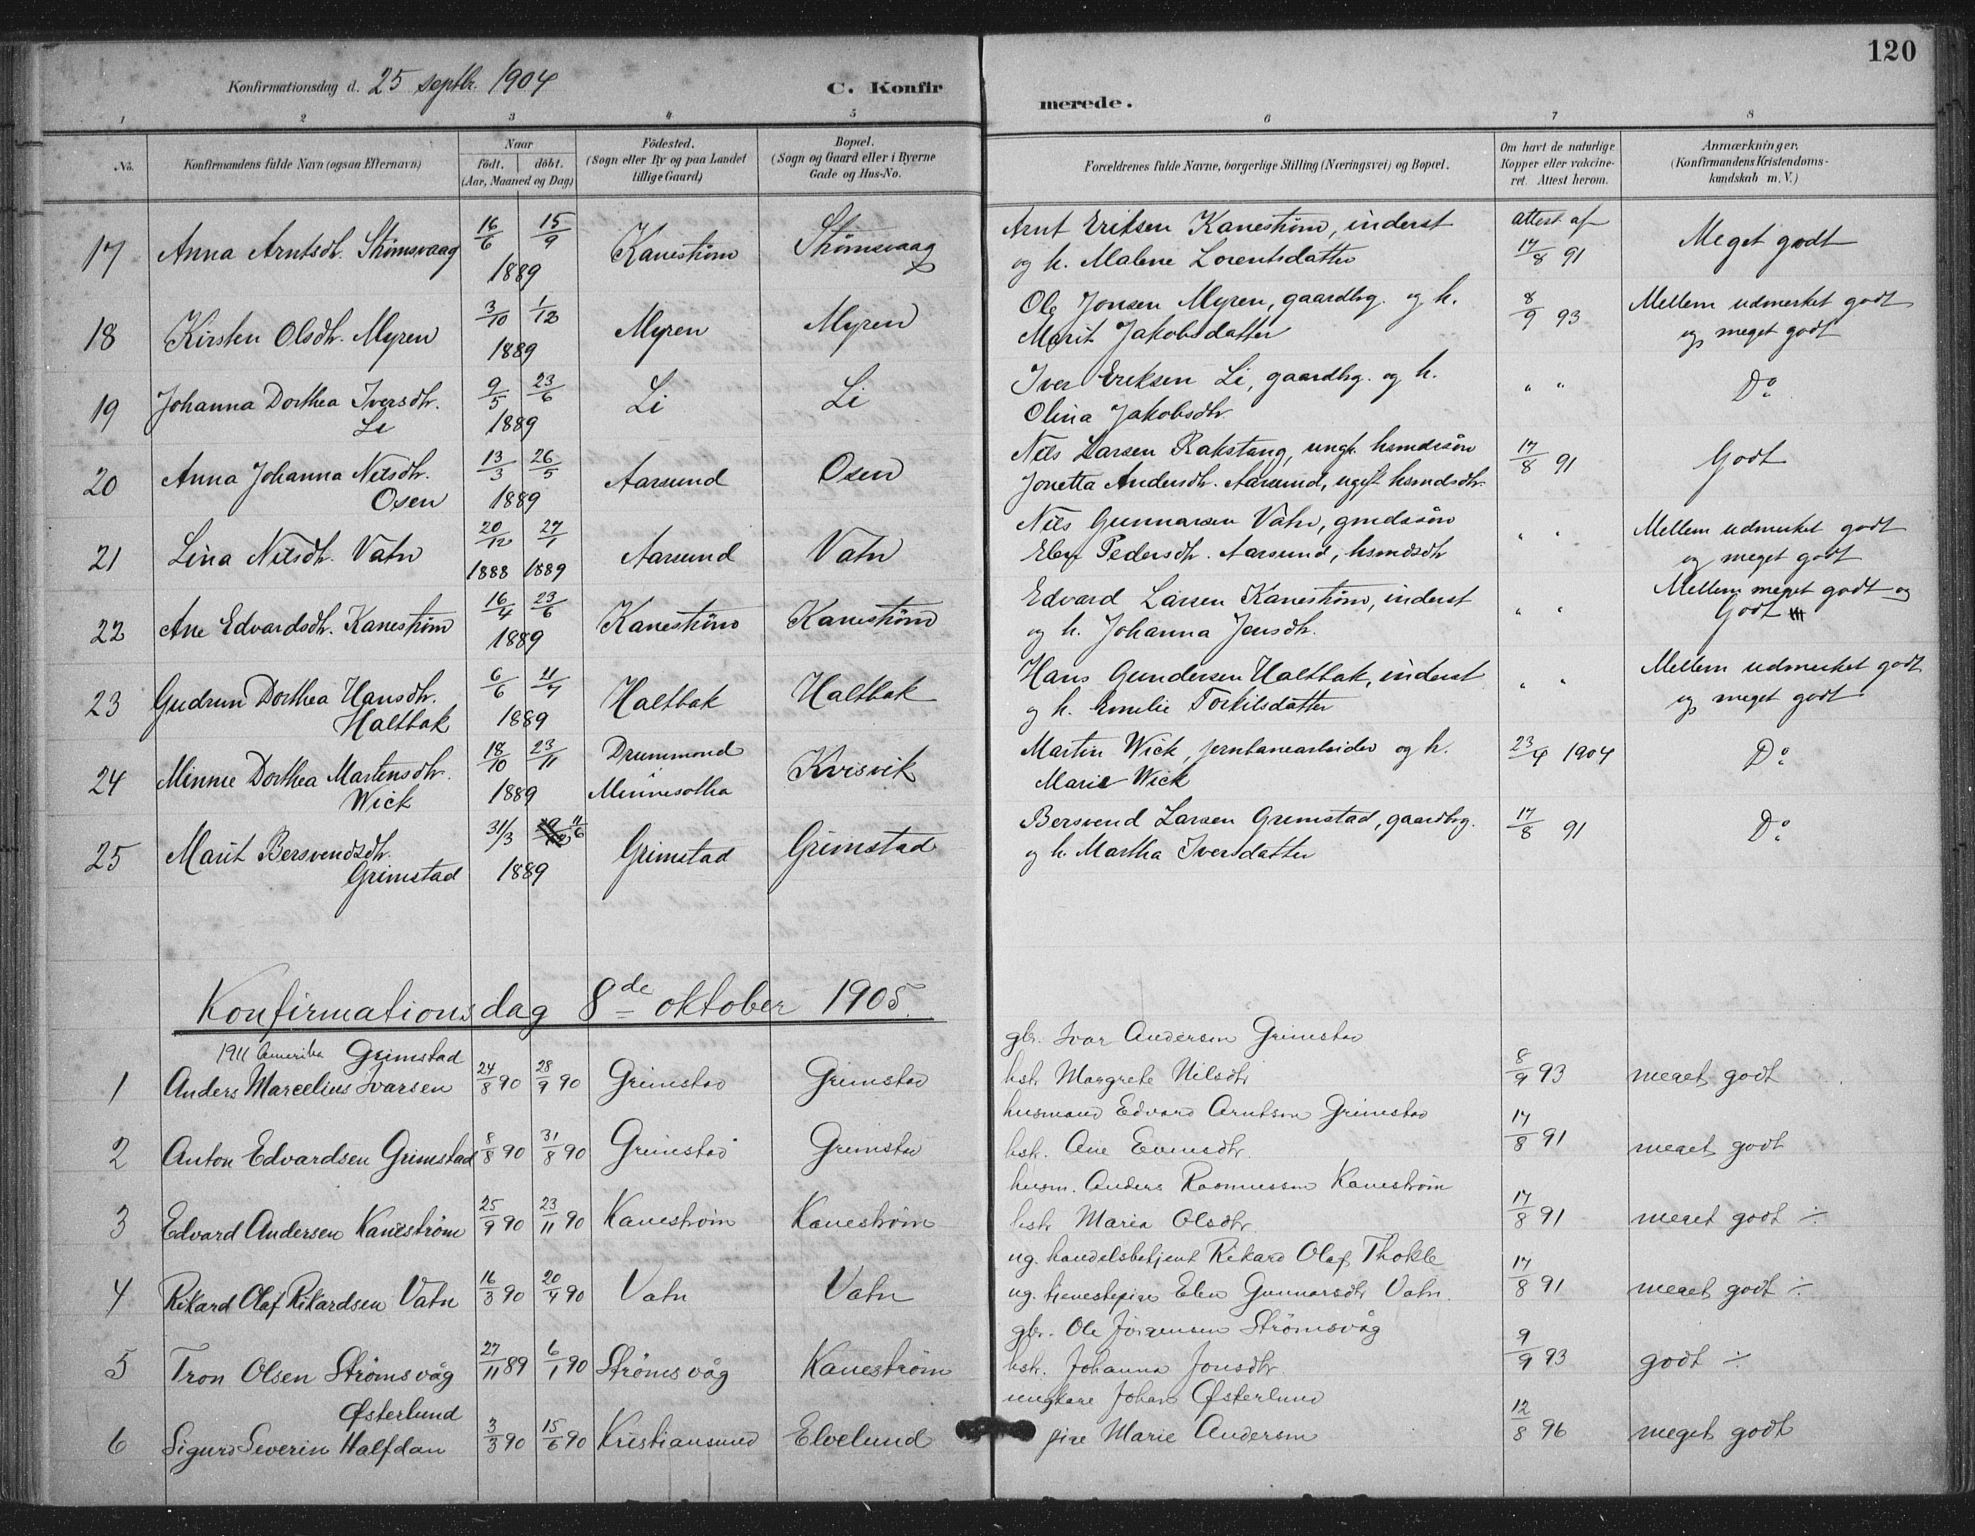 120
Konfirmationsdag d. 25 septbr. 1904
C. Konfir
merede.
1 2 3 4 5 6 7 8
No.
Konfirmandens fulde Navn (ogsaa Efternavn)
Naar
født. døbt.
(Aar, Maaned og Dag)
Fødested.
(Sogn eller By og paa Landet
tillige Gaard)
Bopæl.
(Sogn og Gaard eller i Byerne
Gade og Hus-No.
Forældrenes fulde Navne, borgerlige Stilling (Næringsvei) og Bopæl.
Om havt de naturlige
Kopper eller vakcine-
ret. Attest herom.
Anmærkninger.
(Konfirmandens Kristendoms-
kundskab m. V.)
17 Anna Arntsdtr. Strömsvaag 16/6 15/9 1889 Kaneström Strömsvaag
Arnt Eriksen Kaneström, inderst
og h. Malene Lorentsdatter
attest af
17/8 91 Meget godt
18 Kirsten Olsdtr. Myren 3/10 1/12 1889 Myren Myren
Ole Jonsen Myren, gaardbrg. og h.
Marit Jakobsdatter
8/9 93 Mellem udmerket godt
og meget godt
19 Johanna Dorthea Iversdtr.
Li 9/5 23/6 1889 Li Li
Iver Eriksen Li, gaardbrg. og h.
Olina Jakobsdtr.
" " Do
20 Anna Johanna Nilsdtr.
Osen 13/3 26/5 1889 Aarsund Osen
Nils Larsen Rakstang, ungk. hsmdssön
Jonetta Andersdtr. Aarsund, ugift hsmdsdtr.
17/8 91 Godt
21 Lina Nilsdtr. Vatn 20/12 1888 27/1 1889 Aarsund Vatn
Nils Gunnarsen Vatn, gmdssön
Elen Pedersdtr. Aarsund, hsmdsdtr
" " Mellem udmerket godt
og meget godt
22 Ane Edvardsdtr. Kaneström 16/4 23/6 1889 Kaneström Kaneström
Edvard Larsen Kaneström, inderst
og h. Johanna Jensdtr.
" " Mellem meget godt og
Godt
23 Gudrun Dorthea Hansdtr.
Haltbak 6/6 11/7 1889 Haltbak Haltbak
Hans Gundersen Haltbak, inderst
og h. Emelie Torkilsdatter
" " Mellem udmerket godt
og meget godt
24 Minnie Dorthea Martinsdtr.
Wick 18/10 23/11 1889 Drummond
Minnesotha Kvisvik
Martin Wick, jernbanearbeider og h.
Marie Wick
23/4 1904 Do
25 Marit Bersvendsdtr.
Grimstad 31/3 11/6 1889 Grimstad Grimstad
Bersvend Larsen Grimstad, gaardbrg.
og h. Martha Iversdatter
17/8 91 Do
Konfirmationsdag 8de oktober 1905.
1911 Amerika Grimstad
1 Anders Marcelius Ivarsen 24/8 90 28/9 90 Grimstad Grimstad
gbr. Ivar Andersen Grimstad
hstr Margrete Nilsdtr
8/9 93 meget godt
2 Anton Edvardsen Grimstad 8/8 90 31/8 90 Grimstad Grimstad
husmand Edvard Arntsen Grimstad
hstr. Ane Evensdtr.
17/8 91 meget godt
3 Edvard Andersen Kaneström 25/9 90 23/11 90 Kaneström Kaneström
husm. Anders Rasmussen Kaneström
hstr Maria Olsdtr.
17/8 91 meget godt ÷
4 Rikard Olaf Rikardsen Vatn 16/3 90 20/4 90 Vatn Vatn
ug. handelsbetjent Rikard Olaf Thokle
ug. tjenestepige Elen Gunnarsdtr Vatn.
17/8 91 meget godt ÷
5 Tron Olsen Strömsvåg 27/11 89 6/1 90 Strömsvåg Kaneström
gbr. Ole Jörgensen Strömsvåg
hstr. Johanna Jonsdtr.
9/9 93 godt ÷
Østerlund
6 Sigurd Severin Halfdan 3/3 90 15/6 90 Kristiansund Elvelund
ungkare Johan Østerlund
pige Marie Andersen
12/8 96 meget godt